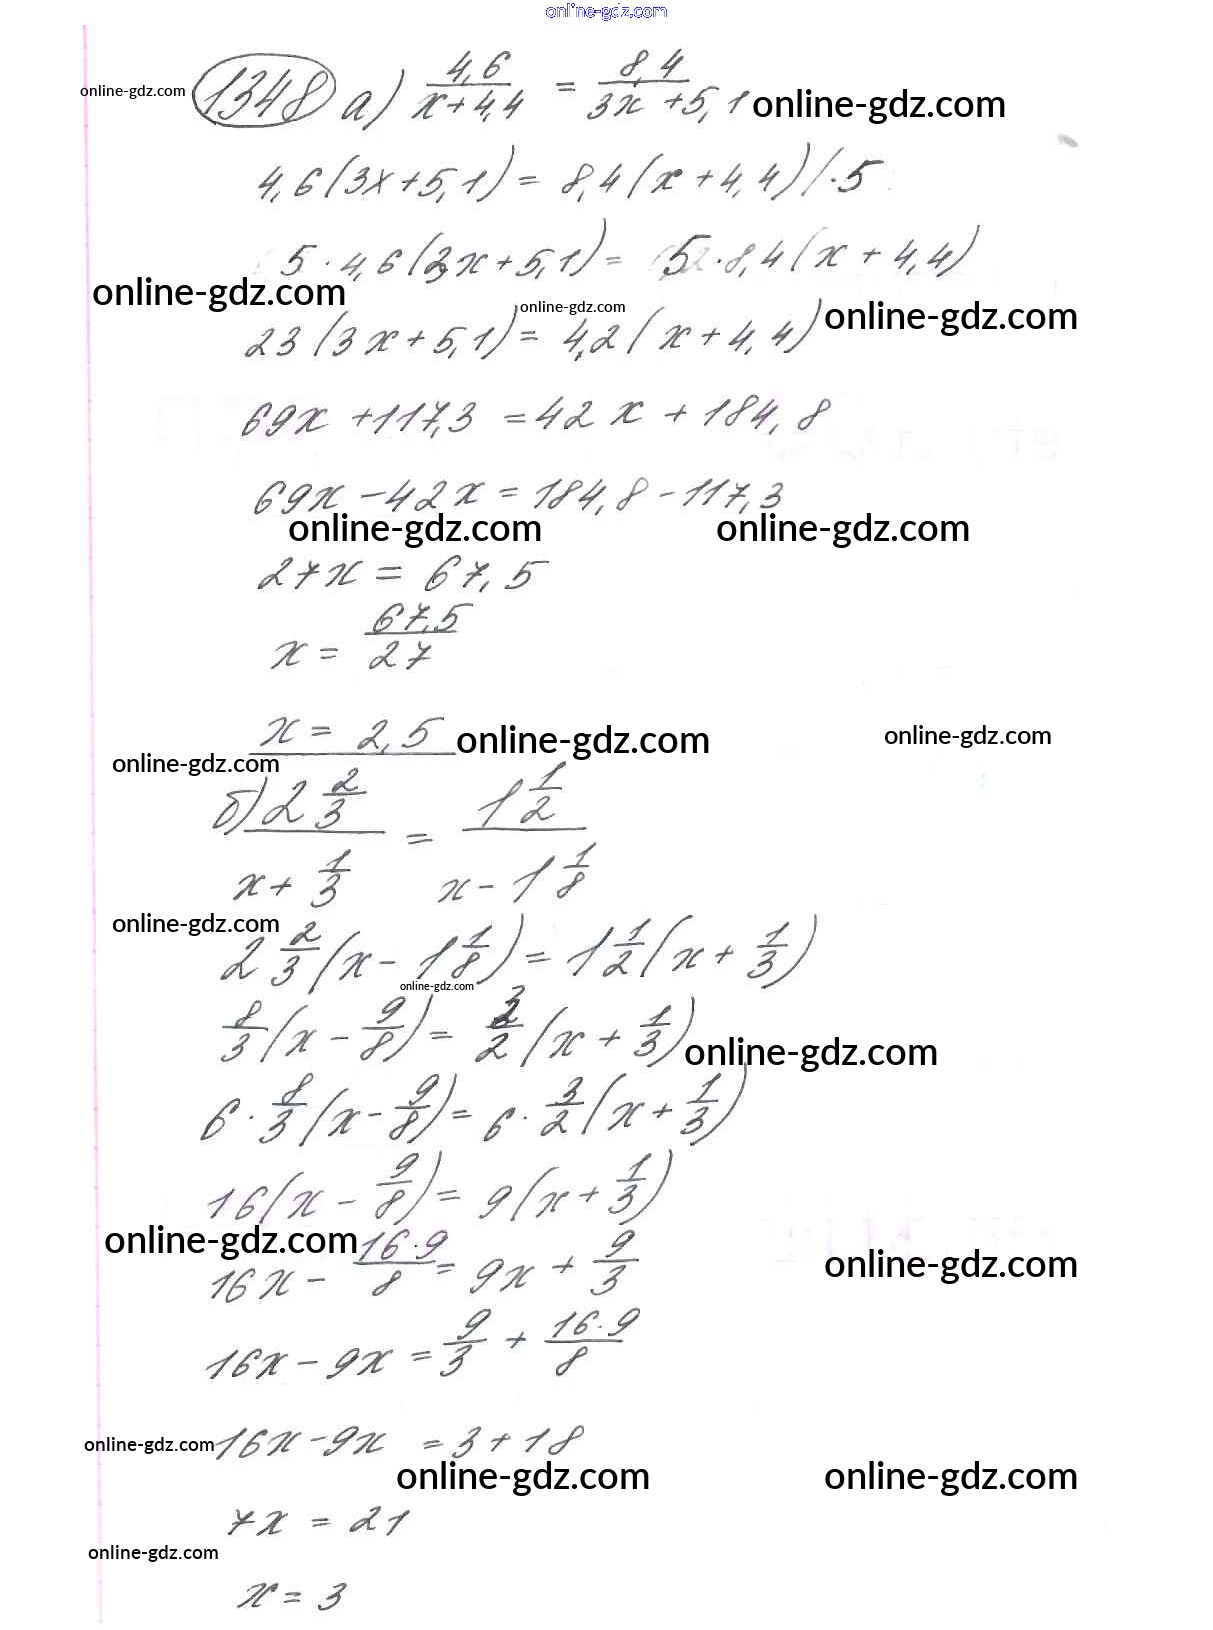 online-gdz.com
1348 а) 4,6/(x+4,4) = 8,4/(3x+5,1)
online-gdz.com online-gdz.com
4,6(3x+5,1) = 8,4(x+4,4) /·5
5·4,6(3x+5,1) = 5·8,4(x+4,4)
online-gdz.com online-gdz.com online-gdz.com
23(3x+5,1) = 4,2(x+4,4)
69x+117,3 = 42x+184,8
69x-42x = 184,8-117,3
online-gdz.com online-gdz.com
27x = 67,5
x = 67,5/27
x = 2,5 online-gdz.com online-gdz.com
online-gdz.com
б) 2 2/3 / (x+1/3) = 1 1/2 / (x-1 1/8)
online-gdz.com
2 2/3 (x-1 1/8) = 1 1/2 (x+1/3)
online-gdz.com
8/3 (x-9/8) = 3/2 (x+1/3) online-gdz.com
6·8/3 (x-9/8) = 6·3/2 (x+1/3)
16(x-9/8) = 9(x+1/3)
online-gdz.com online-gdz.com
16x - 16·9/8 = 9x + 9/3
16x-9x = 9/3 + 16·9/8
online-gdz.com 16x-9x = 3+18
online-gdz.com online-gdz.com
7x = 21
online-gdz.com
x = 3